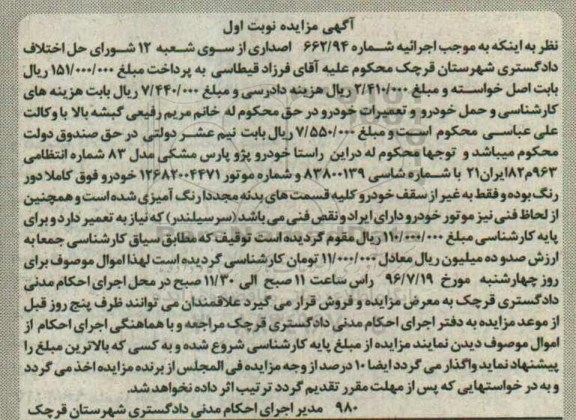 آگهی مزایده نوبت اول
نظر به اینکه به موجب اجرائیه شماره ۶۶۲/۹۴ اصداری از سوی شعبه ۱۲ شورای حل اختلاف
دادگستری شهرستان قرچک محکوم علیه آقای فرزاد قیطاسی به پرداخت مبلغ ۱۵۱/۰۰۰/۰۰۰ ریال
بابت اصل خواسته و مبلغ ۳/۴۱۰/۰۰۰ ریال هزینه دادرسی و مبلغ ۷/۴۴۰/۰۰۰ ریال بابت هزینه های
کارشناسی و حمل خودرو و تعمیرات خودرو در حق محکوم له خانم مریم رفیعی گیشه بالا با وکالت
علی عباسی محکوم است و مبلغ ۷/۵۵۰/۰۰۰ ریال بابت نیم عشر دولتی در حق صندوق دولت
محکوم میباشد و توجها محکوم له دراین راستا خودرو پژو پارس مشکی مدل ۸۳ شماره انتظامی
۹۶۳م۸۲ایران۲۱ با شماره شاسی ۸۳۸۰۰۱۳۹ و شماره موتور ۱۲۶۸۲۰۰۴۴۷۱ خودرو فوق کاملا دور
رنگ بوده و فقط به غیر از سقف خودرو کلیه قسمت های بدنه مجددا رنگ آمیزی شده است و همچنین
از لحاظ فنی نیز موتور خودرو دارای ایراد و نقص فنی می باشد (سرسیلندر) که نیاز به تعمیر دارد و برای
پایه کارشناسی مبلغ ۱۱۰/۰۰۰/۰۰۰ ریال مقوم گردیده است توقیف که مطابق سیاق کارشناسی جمعا به
ارزش صد و ده میلیون ریال معادل ۱۱/۰۰۰/۰۰۰ تومان کارشناسی گردیده است لهذا اموال موصوف برای
روز چهارشنبه مورخ ۹۶/۷/۱۹ راس ساعت ۱۱ صبح الی ۱۱/۳۰ صبح در محل اجرای احکام مدنی
دادگستری قرچک به معرض مزایده و فروش قرار می گیرد علاقمندان می توانند ظرف پنج روز قبل
از موعد مزایده به دفتر اجرای احکام مدنی دادگستری قرچک مراجعه و با هماهنگی اجرای احکام از
اموال موصوف دیدن نمایند مزایده از مبلغ پایه کارشناسی شروع شده و به کسی که بالاترین مبلغ را
پیشنهاد نماید واگذار می گردد ایضا ۱۰ درصد از وجه مزایده فی المجلس از برنده مزایده اخذ می گردد
و به در خواستهایی که پس از مهلت مقرر تقدیم گردد ترتیب اثر داده نخواهد شد.
۹۸۰ مدیر اجرای احکام مدنی دادگستری شهرستان قرچک